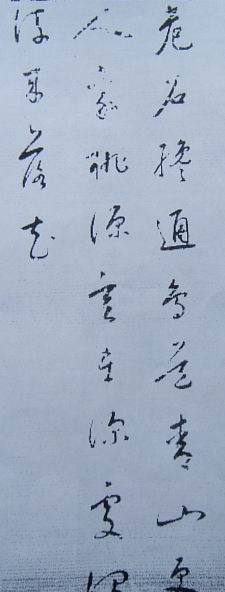 危石纔通鳥道青山更
人家桃源意在深處
浮來落花